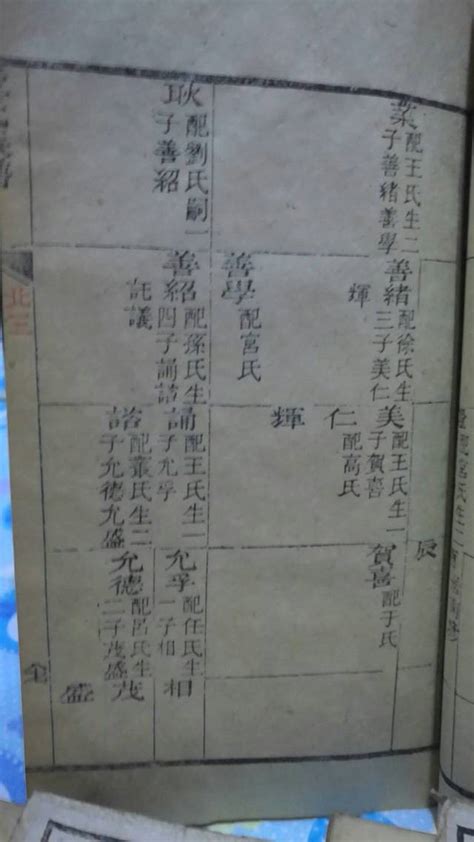 配王氏生二
子善緒善學
耿
配劉氏嗣一
子善紹
善緒
配徐氏生
三子美仁
輝
善學
配宮氏
善紹
配孫氏生
四子誦諮
託議
美
配王氏生一
子賀喜
仁
配高氏
輝
誦
配王氏生一
子允孚
諮
配叢氏生二
子允德允盛
賀喜
配于氏
允孚
配任氏生
一子相
允德
配呂氏生
二子茂盛
相
茂
盛
辰
北三
全